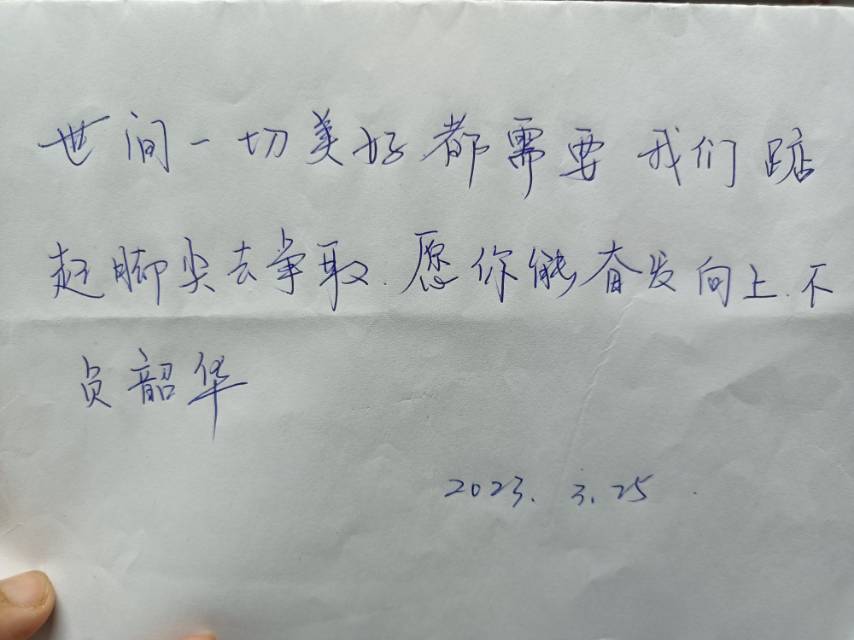 世间一切美好都需要我们踮
起脚尖去争取.愿你能奋发向上.不
负韶华
2023.3.25